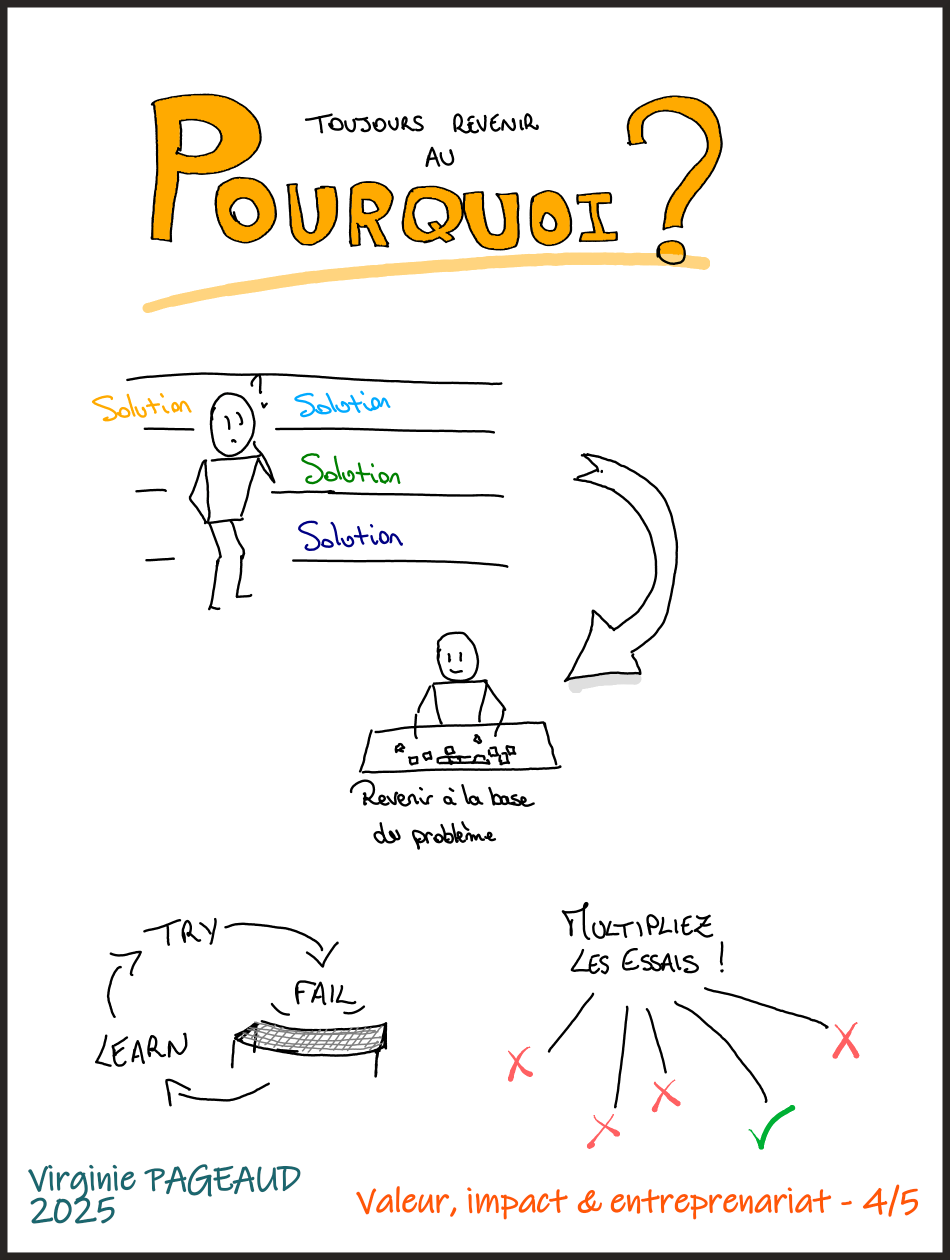 TOUJOURS REVENIR
AU
POURQUOI ?
?
Solution
Solution
Solution
Solution
Revenir à la base
du problème
TRY
FAIL
LEARN
MULTIPLIEZ
LES ESSAIS !
Virginie PAGEAUD
2025
Valeur, impact & entreprenariat - 4/5